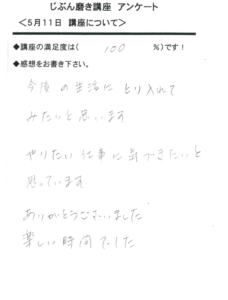 じぶん磨き講座 アンケート
＜5月11日 講座について＞
◆講座の満足度は( 100 %)です！
◆感想をお書き下さい。
今後の生活にとり入れて
みたいと思います
やりたい仕事に気づきたいと
思っています
ありがとうございました
楽しい時間でした